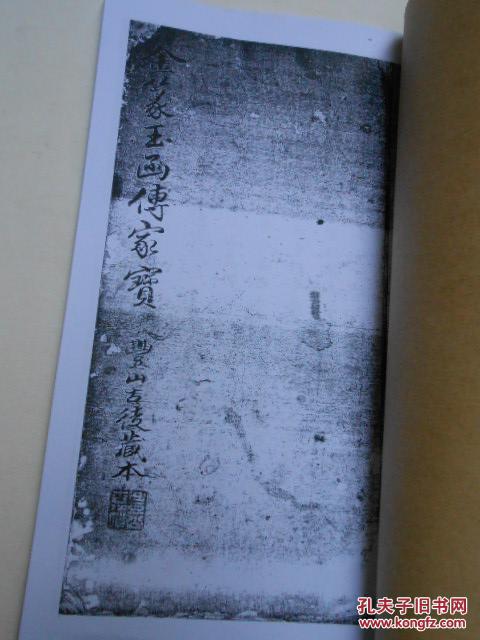 金篆玉函傳家寶
豐山古後藏本
孔夫子旧书网
www.kongfz.com